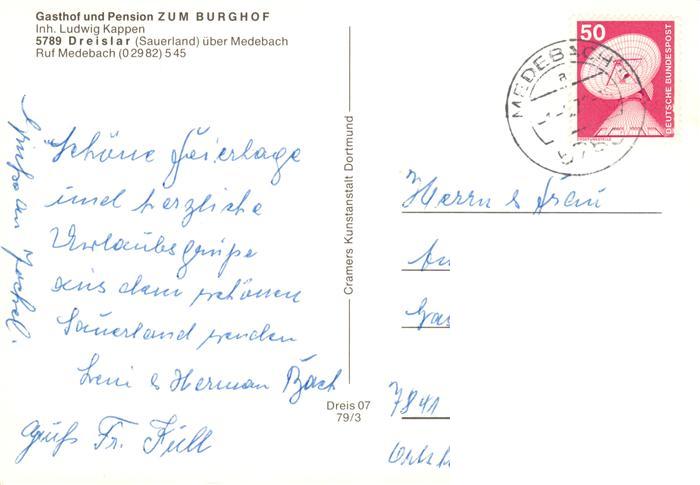 Gasthof und Pension ZUM BURGHOF
Inh. Ludwig Kappen
5789 Dreislar (Sauerland) über Medebach
Ruf Medebach (0 29 82) 5 45
Schöne Feiertage
und herzliche
Urlaubsgrüße
aus dem schönen
Sauerland senden
Leni & Herman Bach
Gruß Fr. Füll
Grüße an
Cramers Kunstanstalt Dortmund
Dreis 07
79/3
50
DEUTSCHE BUNDESPOST
MEDEBACH
a
Herrn & Frau
7841